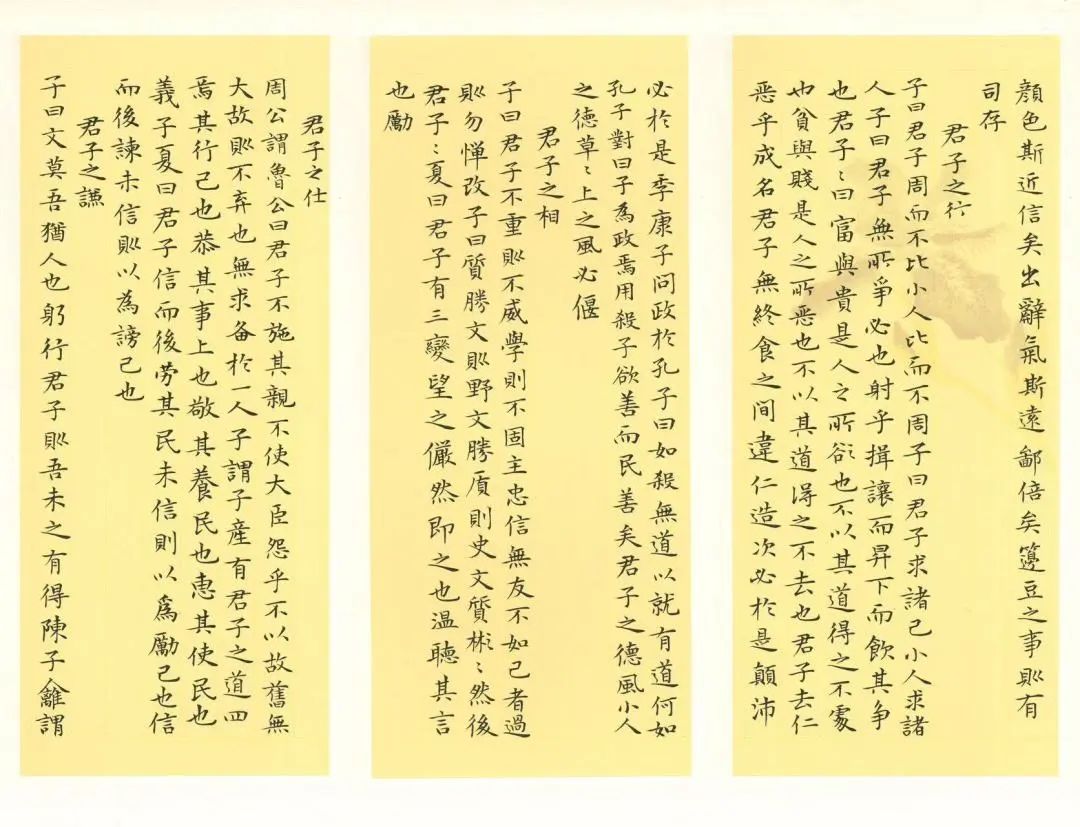 顏色斯近信矣出辭氣斯遠鄙倍矣籩豆之事則有
司存
君子之行
子曰君子周而不比小人比而不周子曰君子求諸己小人求諸
人子曰君子無所爭必也射乎揖讓而昇下而飲其爭
也君子〻曰富與貴是人之所欲也不以其道得之不處
也貧與賤是人之所惡也不以其道淂之不去也君子去仁
惡乎成名君子無終食之間違仁造次必於是顛沛
必於是季康子問政於孔子曰如殺無道以就有道何如
孔子對曰子為政焉用殺子欲善而民善矣君子之德風小人
之德草〻上之風必偃
君子之相
子曰君子不重則不威學則不固主忠信無友不如己者過
則勿憚改子曰質勝文則野文勝質則史文質彬〻然後
君子〻夏曰君子有三變望之儼然即之也温聽其言
也勵
君子之仕
周公謂魯公曰君子不施其親不使大臣怨乎不以故舊無
大故則不弃也無求备於一人子謂子産有君子之道四
焉其行己也恭其事上也敬其養民也惠其使民也
義子夏曰君子信而後劳其民未信則以爲勵己也信
而後諫未信則以為謗己也
君子之謙
子曰文莫吾猶人也躬行君子則吾未之有得陳子龢謂